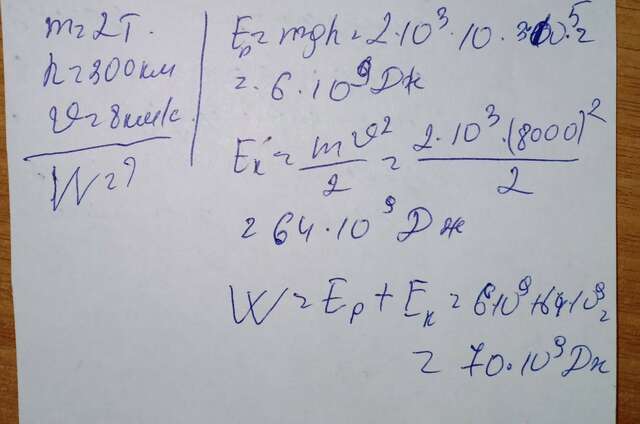 m = 2т.
h = 300 км
υ = 8 км/с
W = ?
Eₚ = mgh = 2·10³·10·3·10⁵ =
= 6·10⁹ Дж
Eₖ = mυ²/2 = 2·10³·(8000)²/2
= 64·10⁹ Дж
W = Eₚ + Eₖ = 6·10⁹+64·10⁹ =
= 70·10⁹ Дж